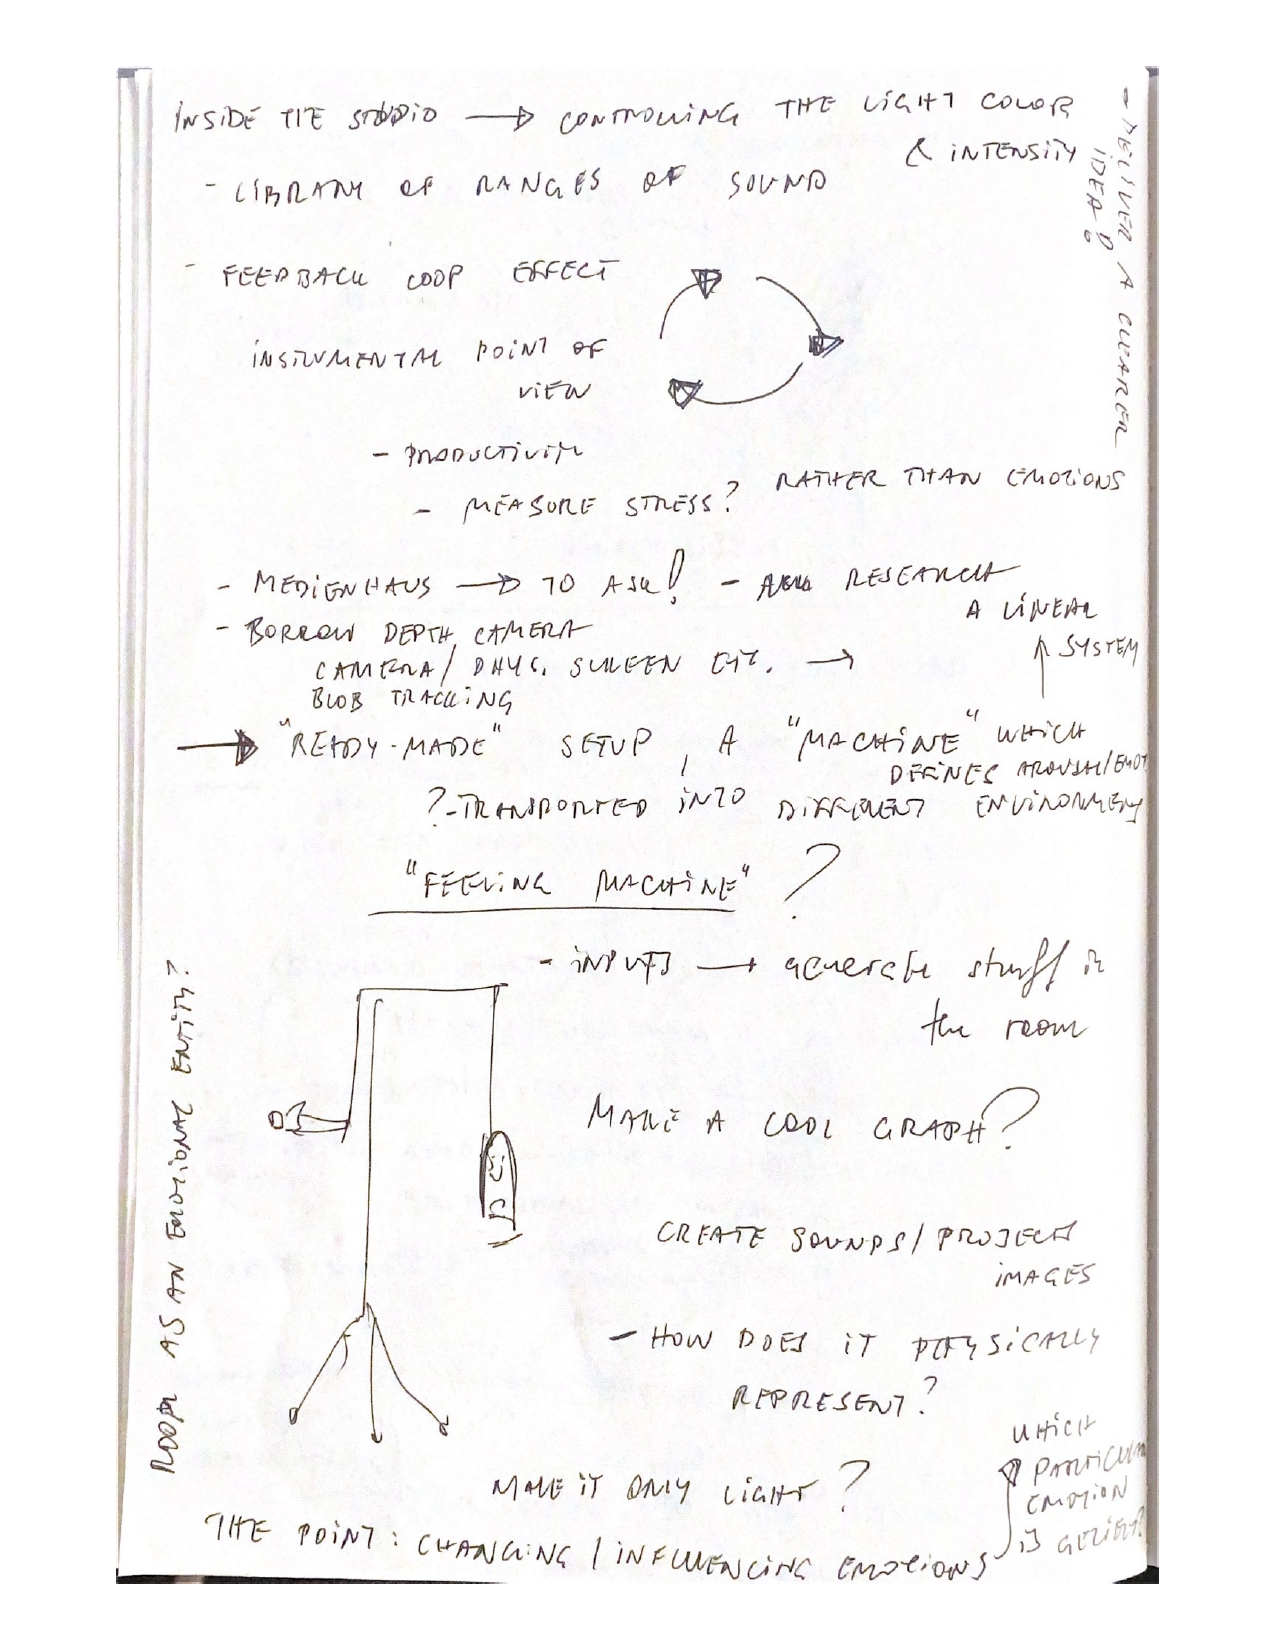 INSIDE THE STUDIO → CONTROLLING THE LIGHT COLOR
& INTENSITY
- LIBRARY OF RANGES OF SOUND
- DELIVER A CLEARER
IDEA!
- FEEDBACK LOOP EFFECT
INSTRUMENTAL POINT OF
VIEW
- PRODUCTIVITY
- MEASURE STRESS? RATHER THAN EMOTIONS
- MEDIENHAUS → TO ASK! - RESEARCH
- BORROW DEPTH CAMERA
CAMERA / PHYS. SCREEN ETC. →
BLOB TRACKING
A LINEAR
↑ SYSTEM
→ "READY-MADE" SETUP, A "MACHINE" WHICH
DEFINES AROUSAL/EMOT
?-TRANSPORTED INTO DIFFERENT ENVIRONMENTS
"FEELING MACHINE" ?
- INPUTS → generate stuff in
the room
ROOM AS AN EMOTIONAL ENTITY?
MAKE A COOL GRAPH?
CREATE SOUNDS / PROJECTS
IMAGES
- HOW DOES IT PHYSICALLY
REPRESENT?
MAKE IT ONLY LIGHT?
THE POINT: CHANGING / INFLUENCING EMOTIONS
WHICH
PARTICULAR
EMOTION
IS